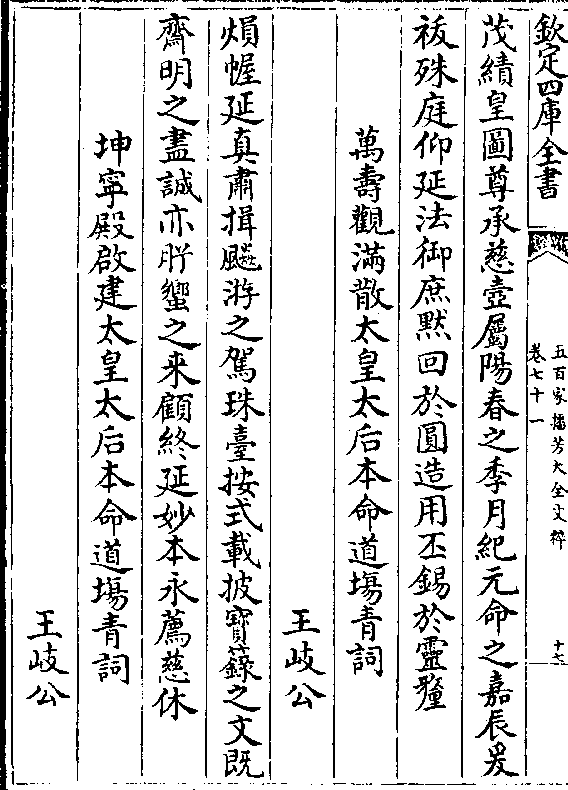 欽定四庫全書
五百家播芳大全文粹
卷七十一
十七
茂績皇圖尊承慈壼屬陽春之季月紀元命之嘉辰爰
祓殊庭仰延法御庶默回於圓造用丕錫於靈釐
萬壽觀滿散太皇太后本命道塲青詞
王岐公
熉幄延真肅揖飈游之駕珠臺按式載披寶籙之文既
齋明之盡誠亦肸蠁之来顧終延妙本永薦慈休
坤寧殿啟建太皇太后本命道塲青詞
王岐公